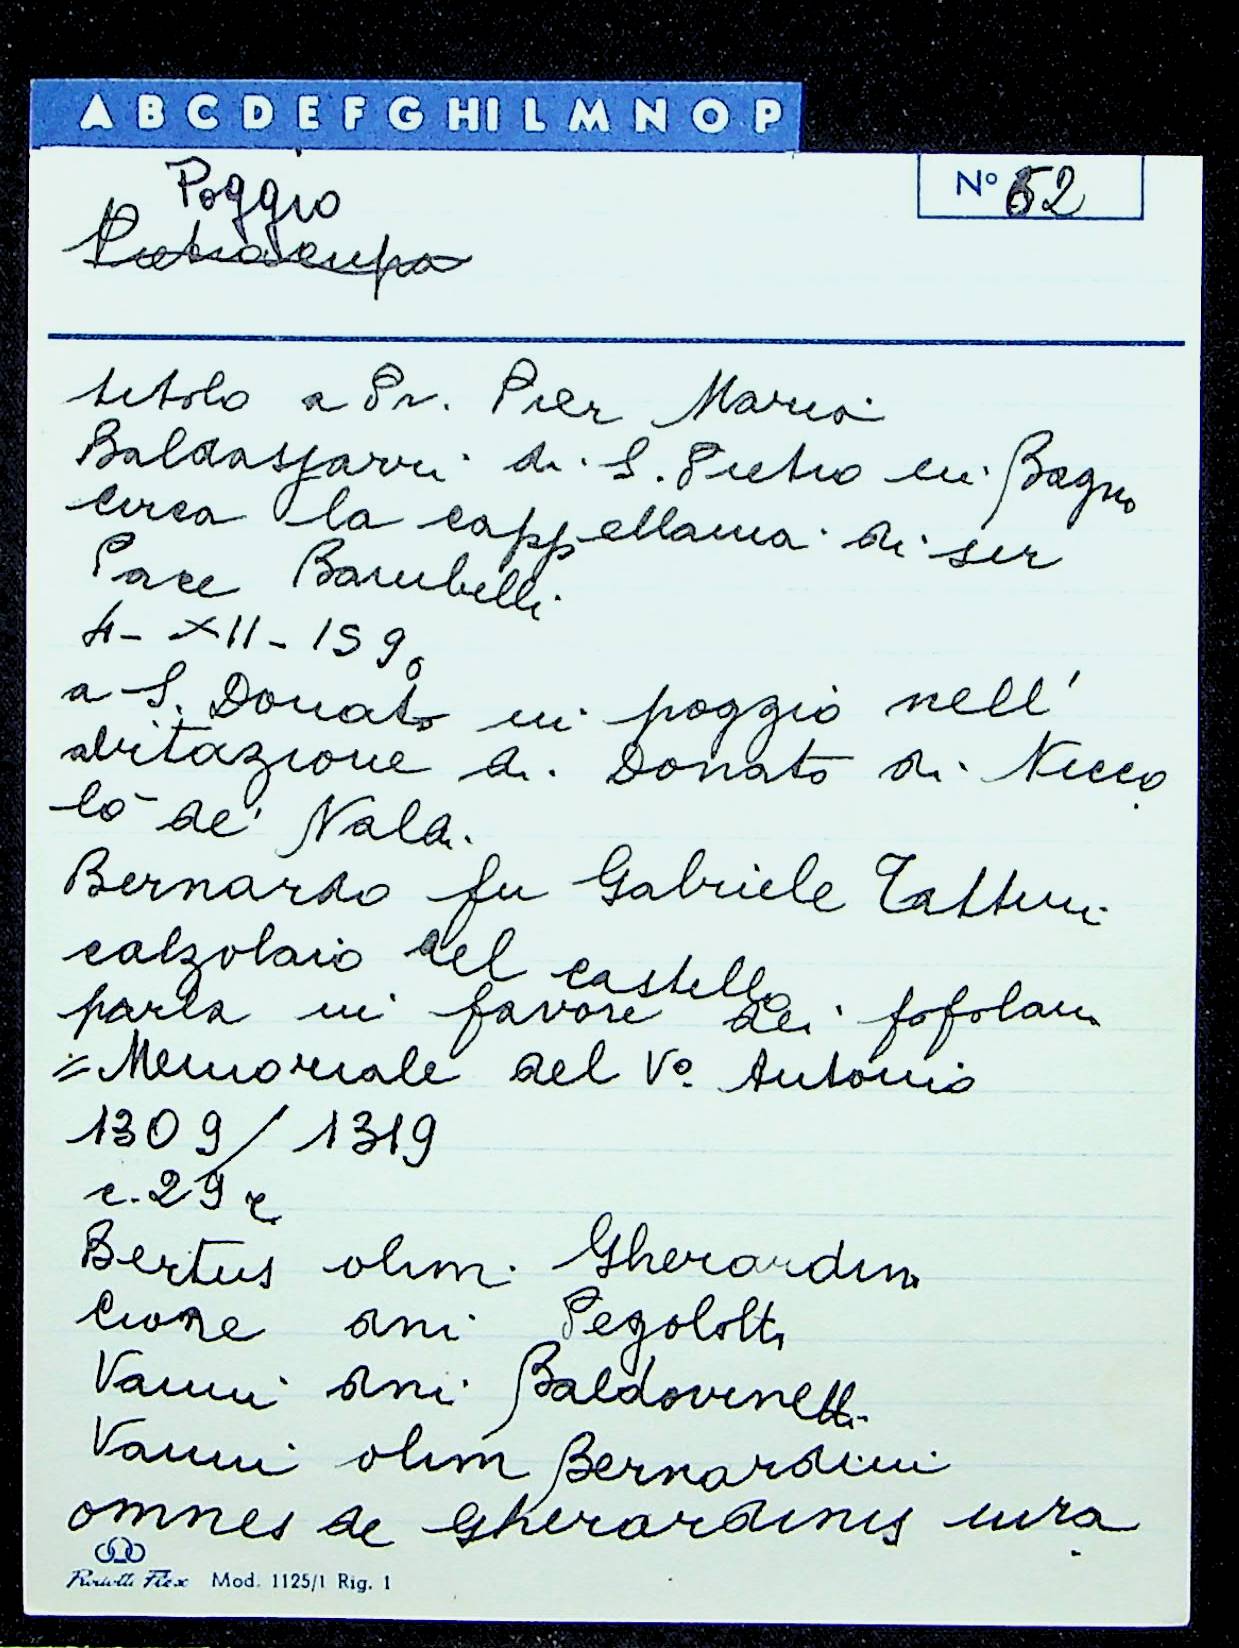 A B C D E F G H I L M N O P
Poggio
N° 52
Pietracupa
titolo a Pr. Pier Maria
Baldasjarri di S. Pietro in Bagno
circa la cappellania di ser
Pace Bambelli
4-XII-1590
a S. Donato in poggio nell'
abitazione di Donato di Nicco
lò de' Naldi.
Bernardo fu Gabriele Tattini
calzolaio del castello
parla in favore dei popolani
= Memoriale del V° Antonio
1309/1319
c. 29 r
Bertus olim Gherardini
Cione dni Pegolotti
Vanni dni Baldovinetti
Vanni olim Bernardini
omnes de Gherardinis iura
Mod. 1125/1 Rig. 1